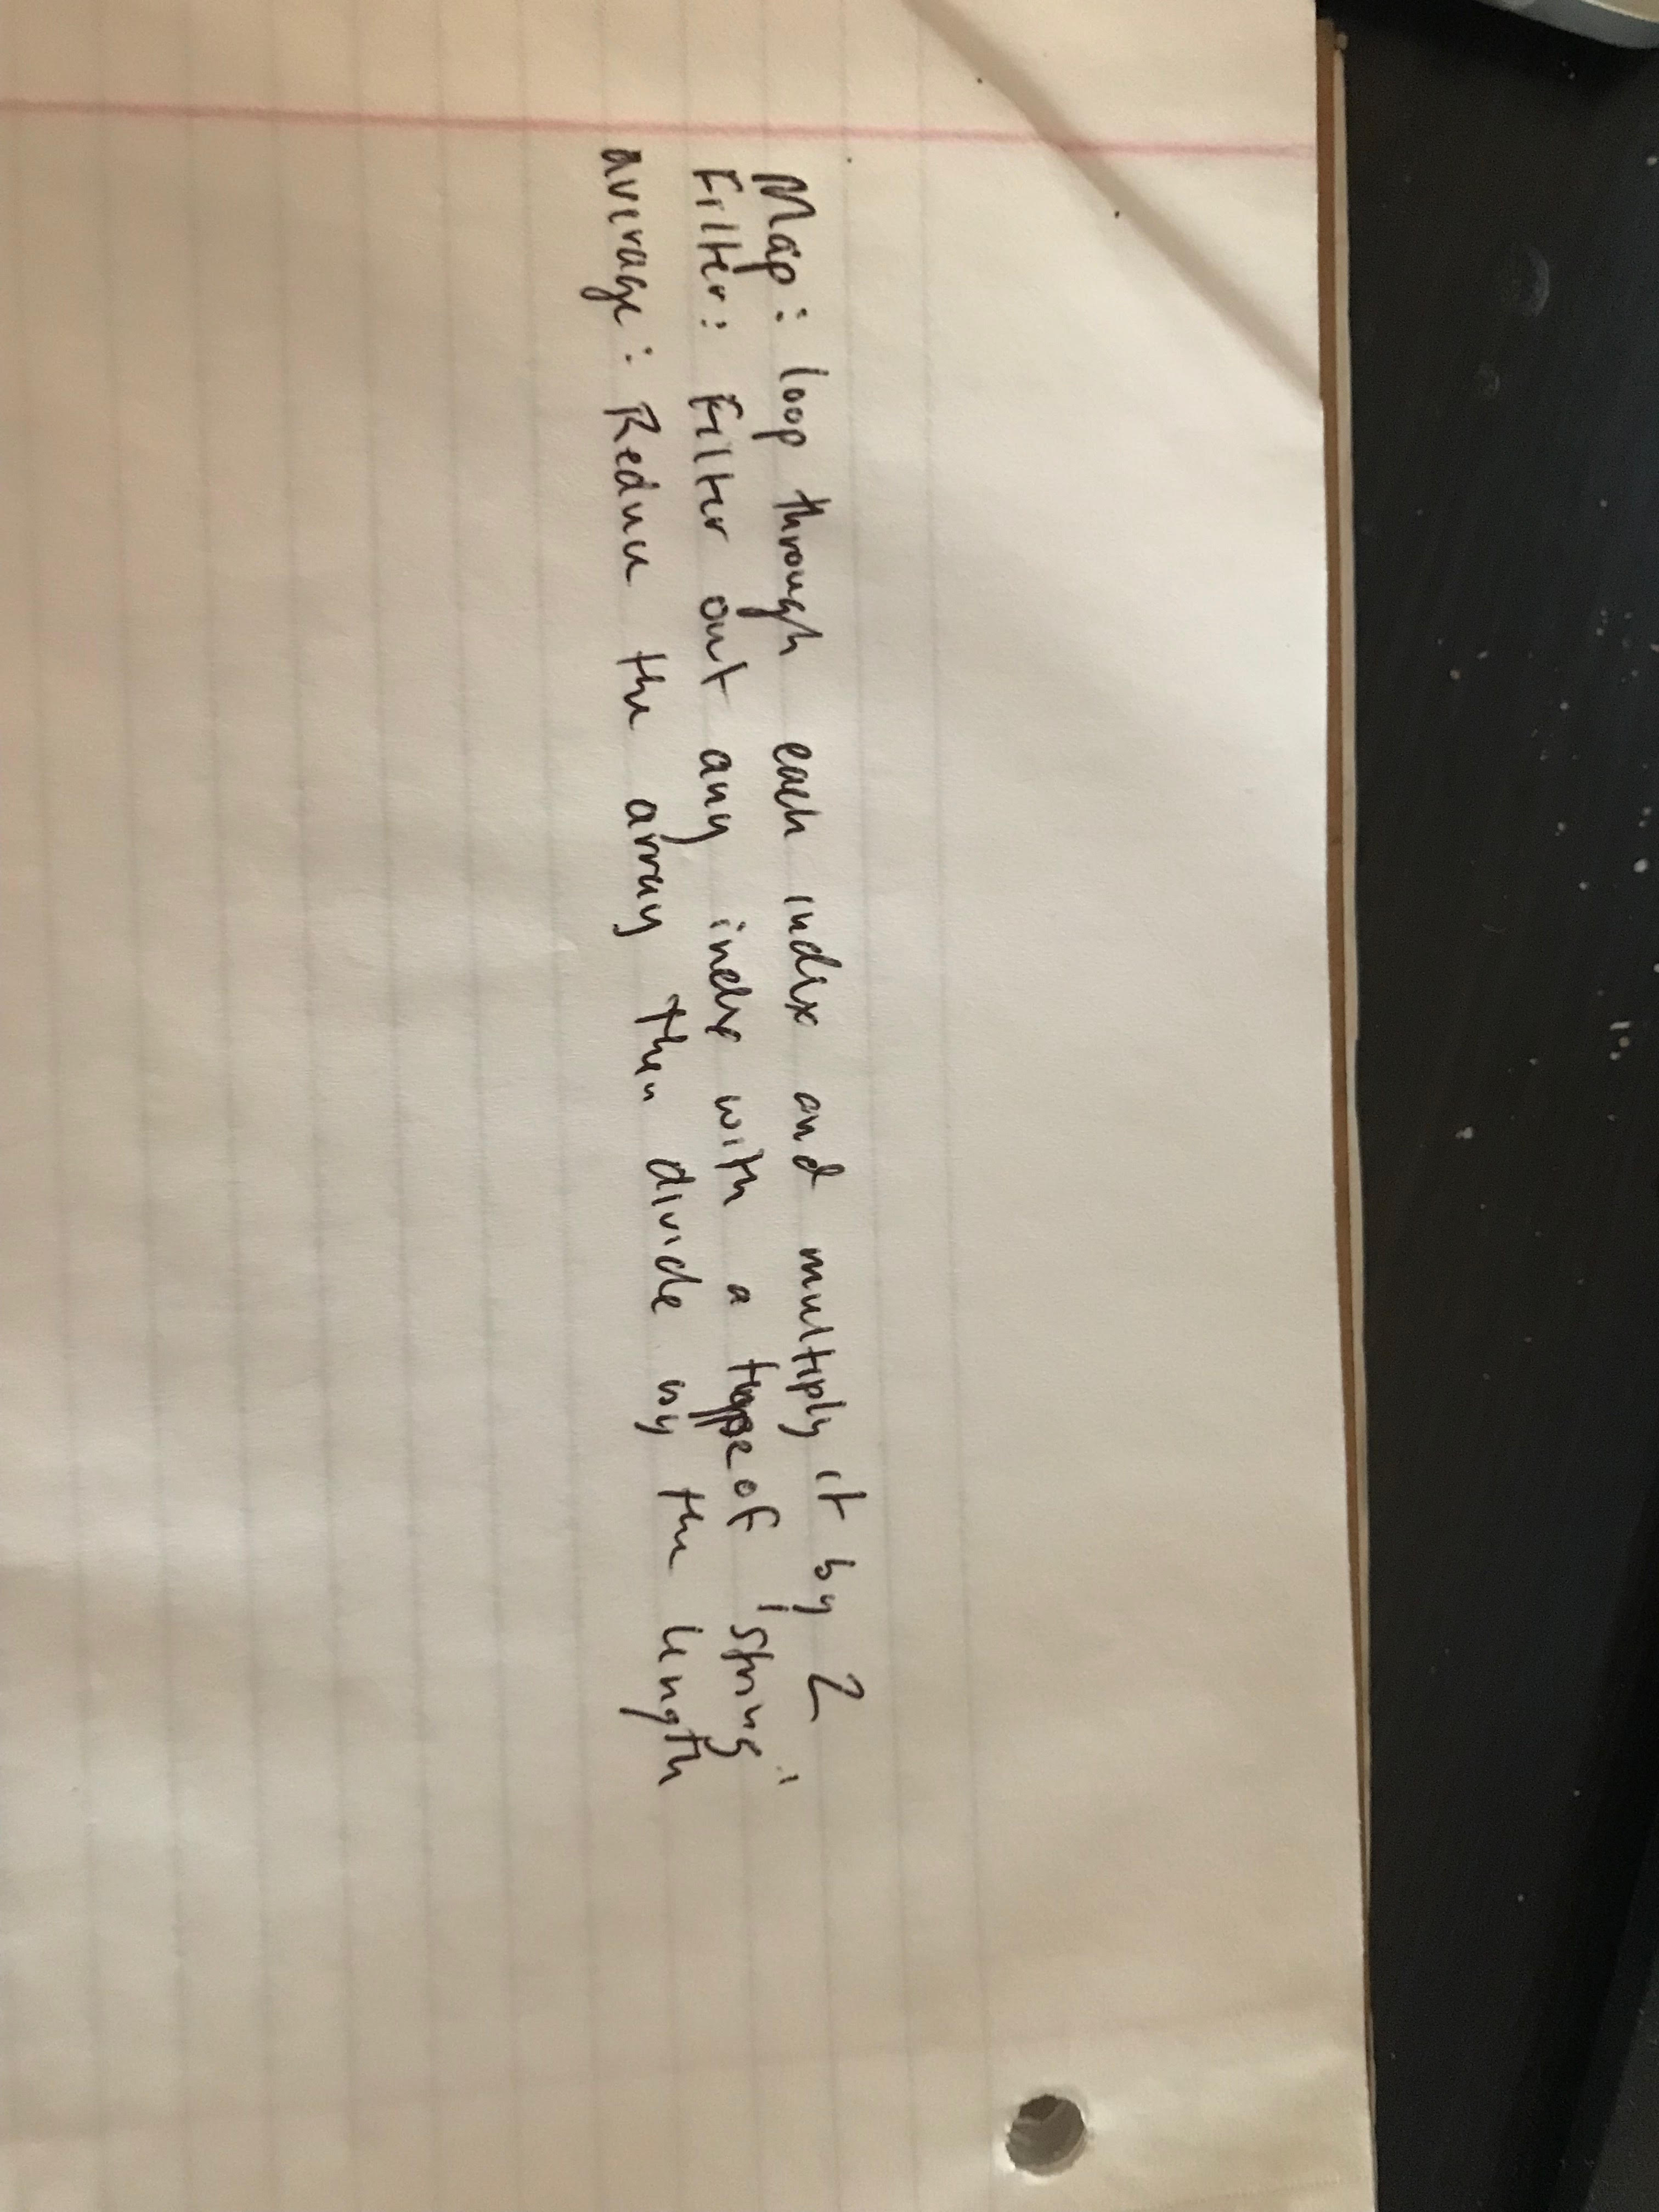 Map: loop through each index and multiply it by 2
Filter: Filter out any index with a typeof 'string'
average: Reduce the array then divide by the length